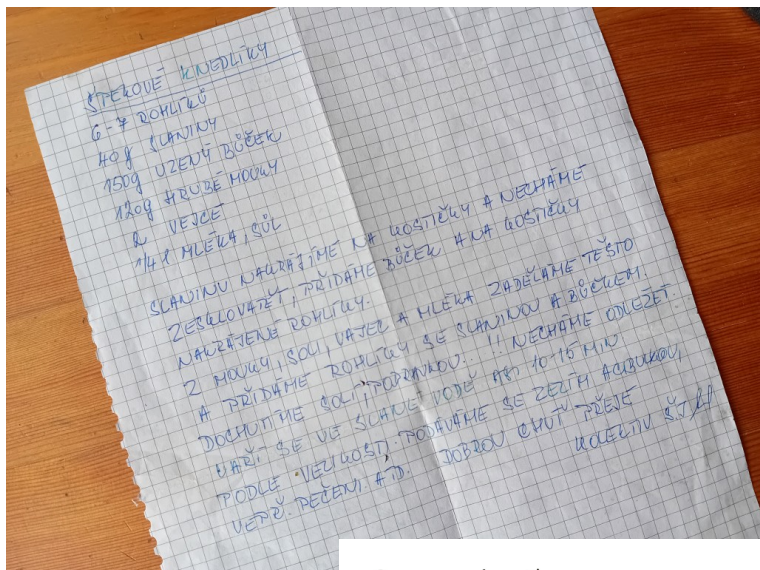 ŠPEKOVÉ KNEDLÍKY
6-7 ROHLÍKŮ
40g SLANINY
150g UZENÝ BŮČEK
120g HRUBÉ MOUKY
2 VEJCE
1/4 l MLÉKA, SŮL
SLANINU NAKRÁJÍME NA KOSTIČKY A NECHÁME
ZESKLOVATĚT, PŘIDÁME BŮČEK A NA KOSTIČKY
NAKRÁJENÉ ROHLÍKY.
Z MOUKY, SOLI, VAJEC A MLÉKA ZADĚLÁME TĚSTO
A PŘIDÁME ROHLÍKY SE SLANINOU A BŮČKEM.
DOCHUTÍME SOLÍ, POLÉVKOU. !! NECHÁME ODLEŽET.
VAŘÍ SE VE SLANÉ VODĚ ASI 10-15 MIN
PODLE VELIKOSTI, PODÁVÁME SE ZELÍM A CIBULKOU,
VEPŘ. PEČENÍ. ATD. DOBROU CHUŤ PŘEJE
KOLEKTIV